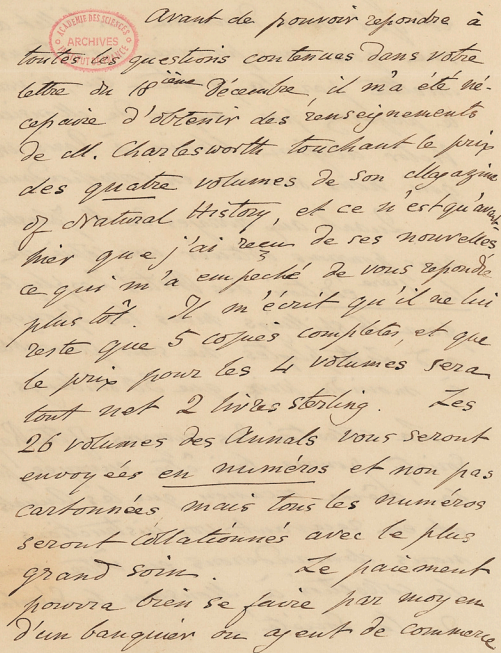 Avant de pouvoir repondre à
ACADEMIE DES SCIENCES
ARCHIVES
toutes les questions contenues dans votre
lettre du 18ième Décembre, il m'a été né-
cessaire d'obtenir des renseignements
de M. Charlesworth touchant le prix
des quatre volumes de son Magazine
of Natural History, et ce n'est qu'avant-
hier que j'ai reçu de ses nouvelles
ce qui m'a empeché de vous repondre
plus tôt. Il m'écrit qu'il ne lui
reste que 5 copies completes, et que
le prix pour les 4 volumes sera
tout net 2 livres sterling. Les
26 volumes des Annals vous seront
envoyées en numéros et non pas
cartonnées mais tous les numéros
seront collationnés avec le plus
grand soin. Le paiement
pourra bien se faire par moyen
d'un banquier ou agent de commerce